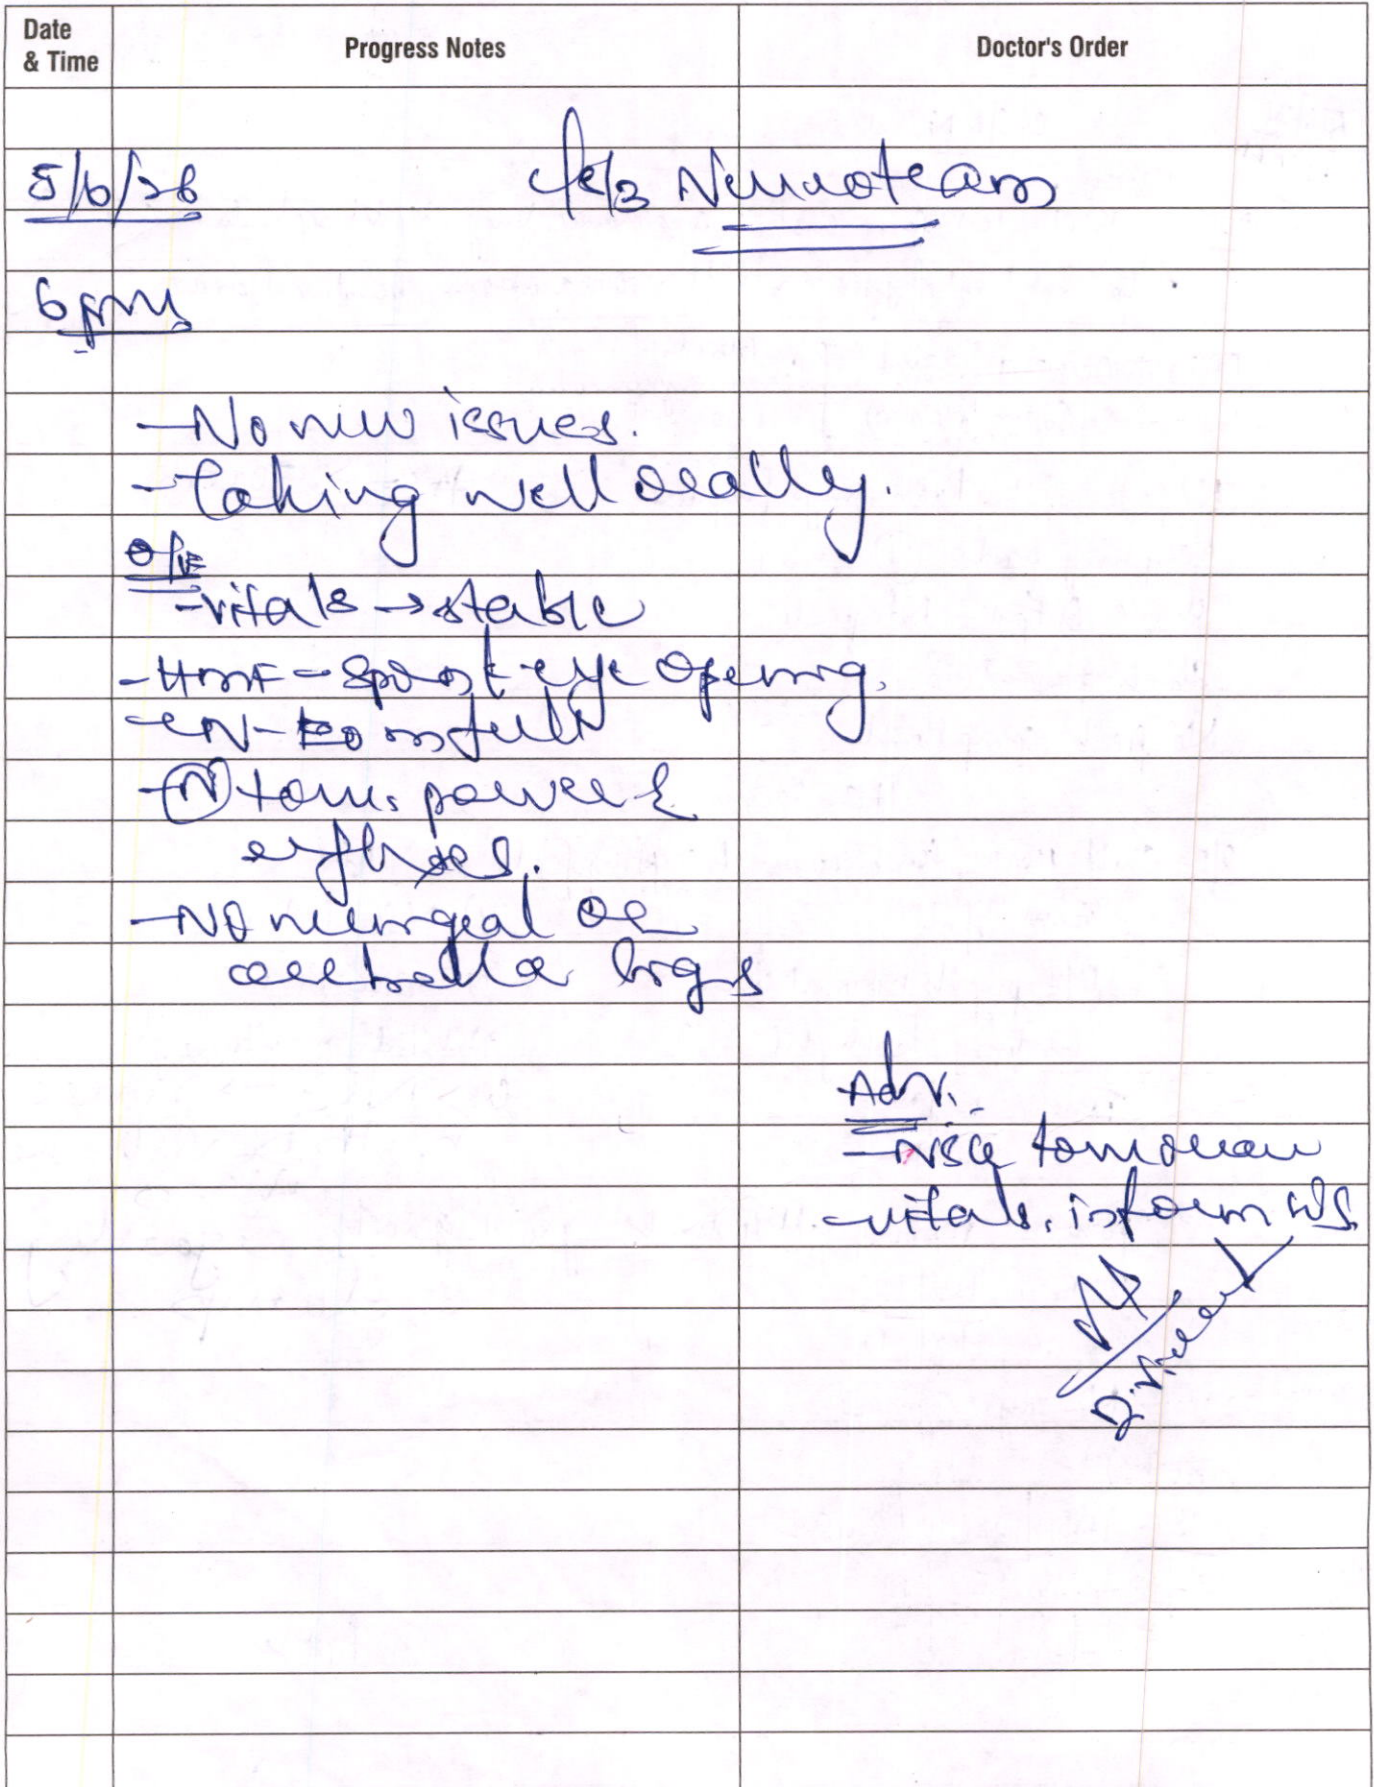 Date & Time
Progress Notes
Doctor's Order
5/6/26
c/s/b Neuroteam
6pm
- No new issues.
- Taking well orally.
O/E
- vitals → stable
- HMF - spont eye opening.
- CN - EOM full
- (N) tone, power &
reflexes.
- No meningeal or
cerebellar signs
Adv.
- tomorrow
- vitals, inform s/s